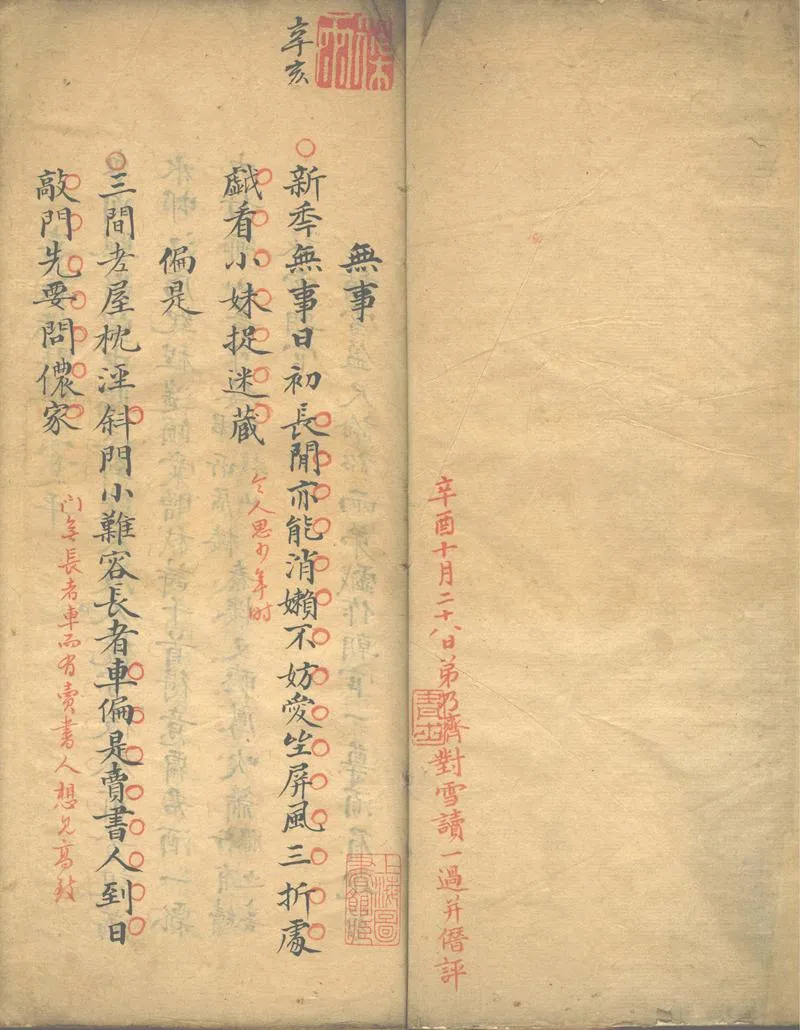 辛酉十月二十八日弟乃濟對雪讀一過并僭評
青士
上海圖書館藏
辛亥
無事
新秊無事日初長閒亦能消嬾不妨愛坐屏風三折處
戱看小妹捉迷藏
令人思少年时
偏是
三間老屋枕涇斜門小難容長者車偏是賣書人到日
敲門先要問儂家
门无長者車而有賣書人想见高致